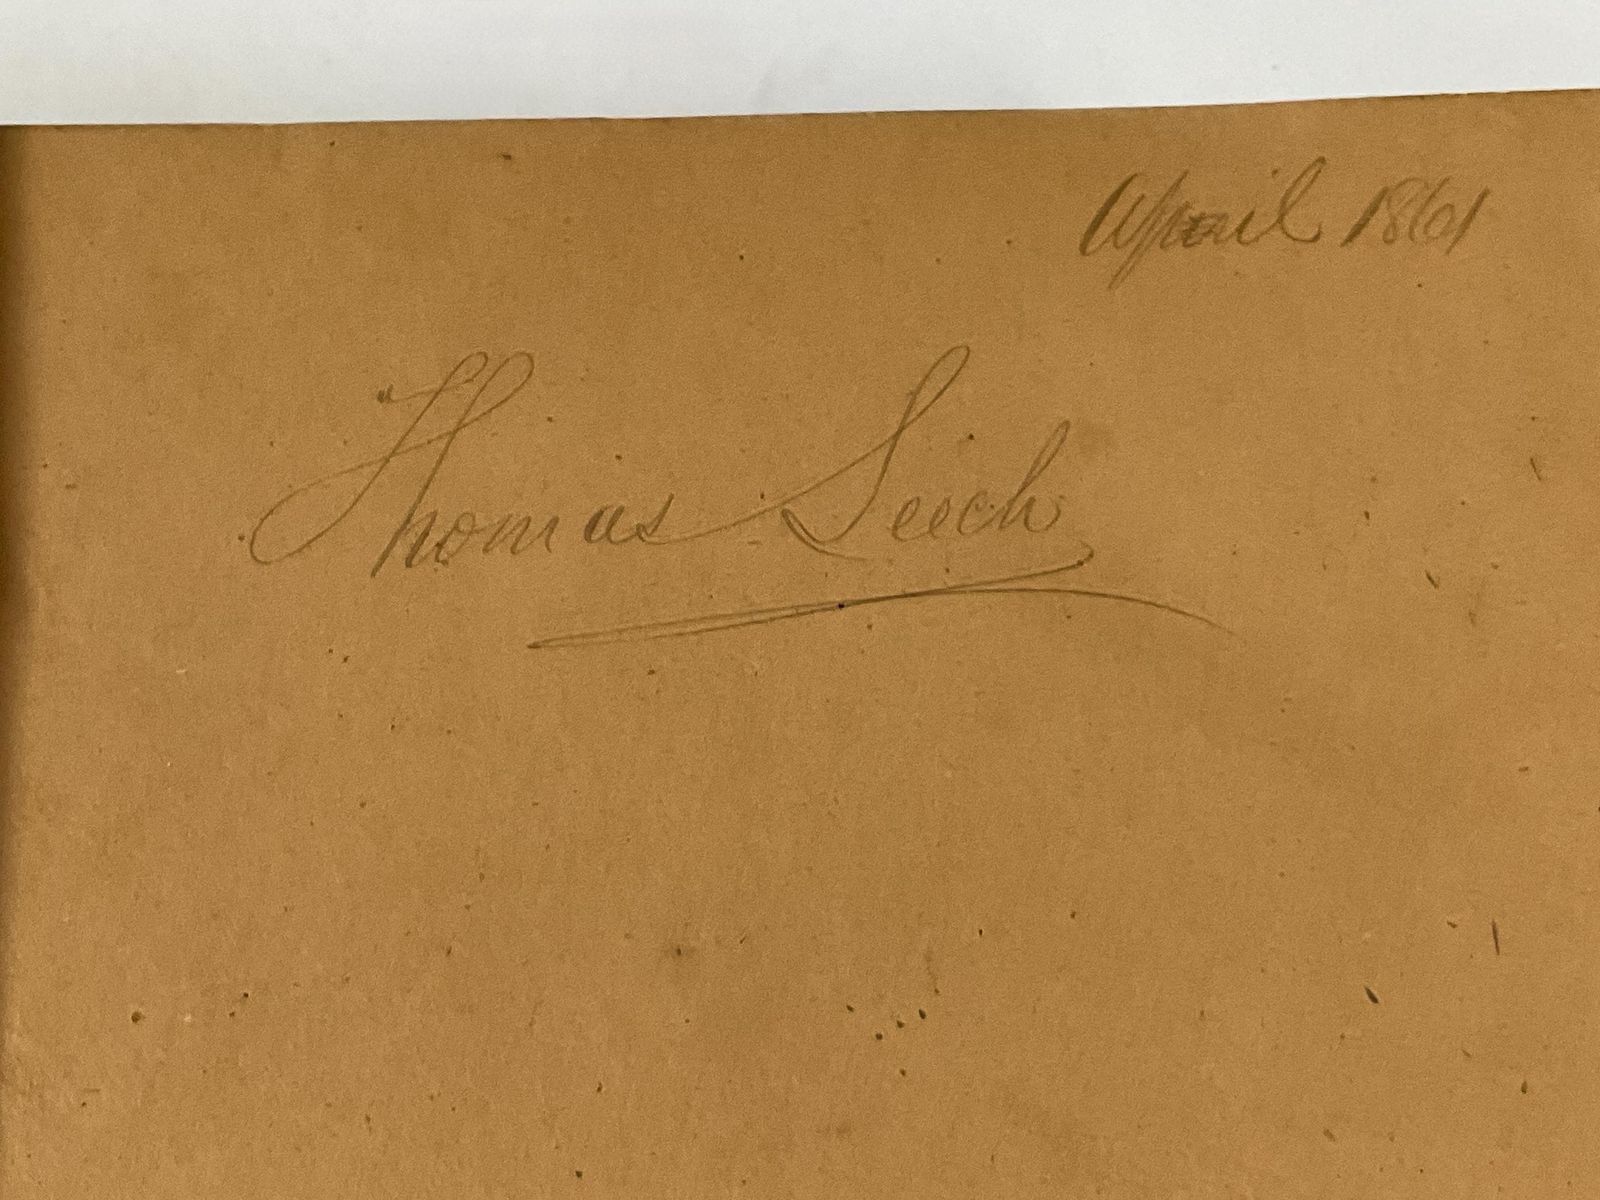 April 1861
Thomas Leech